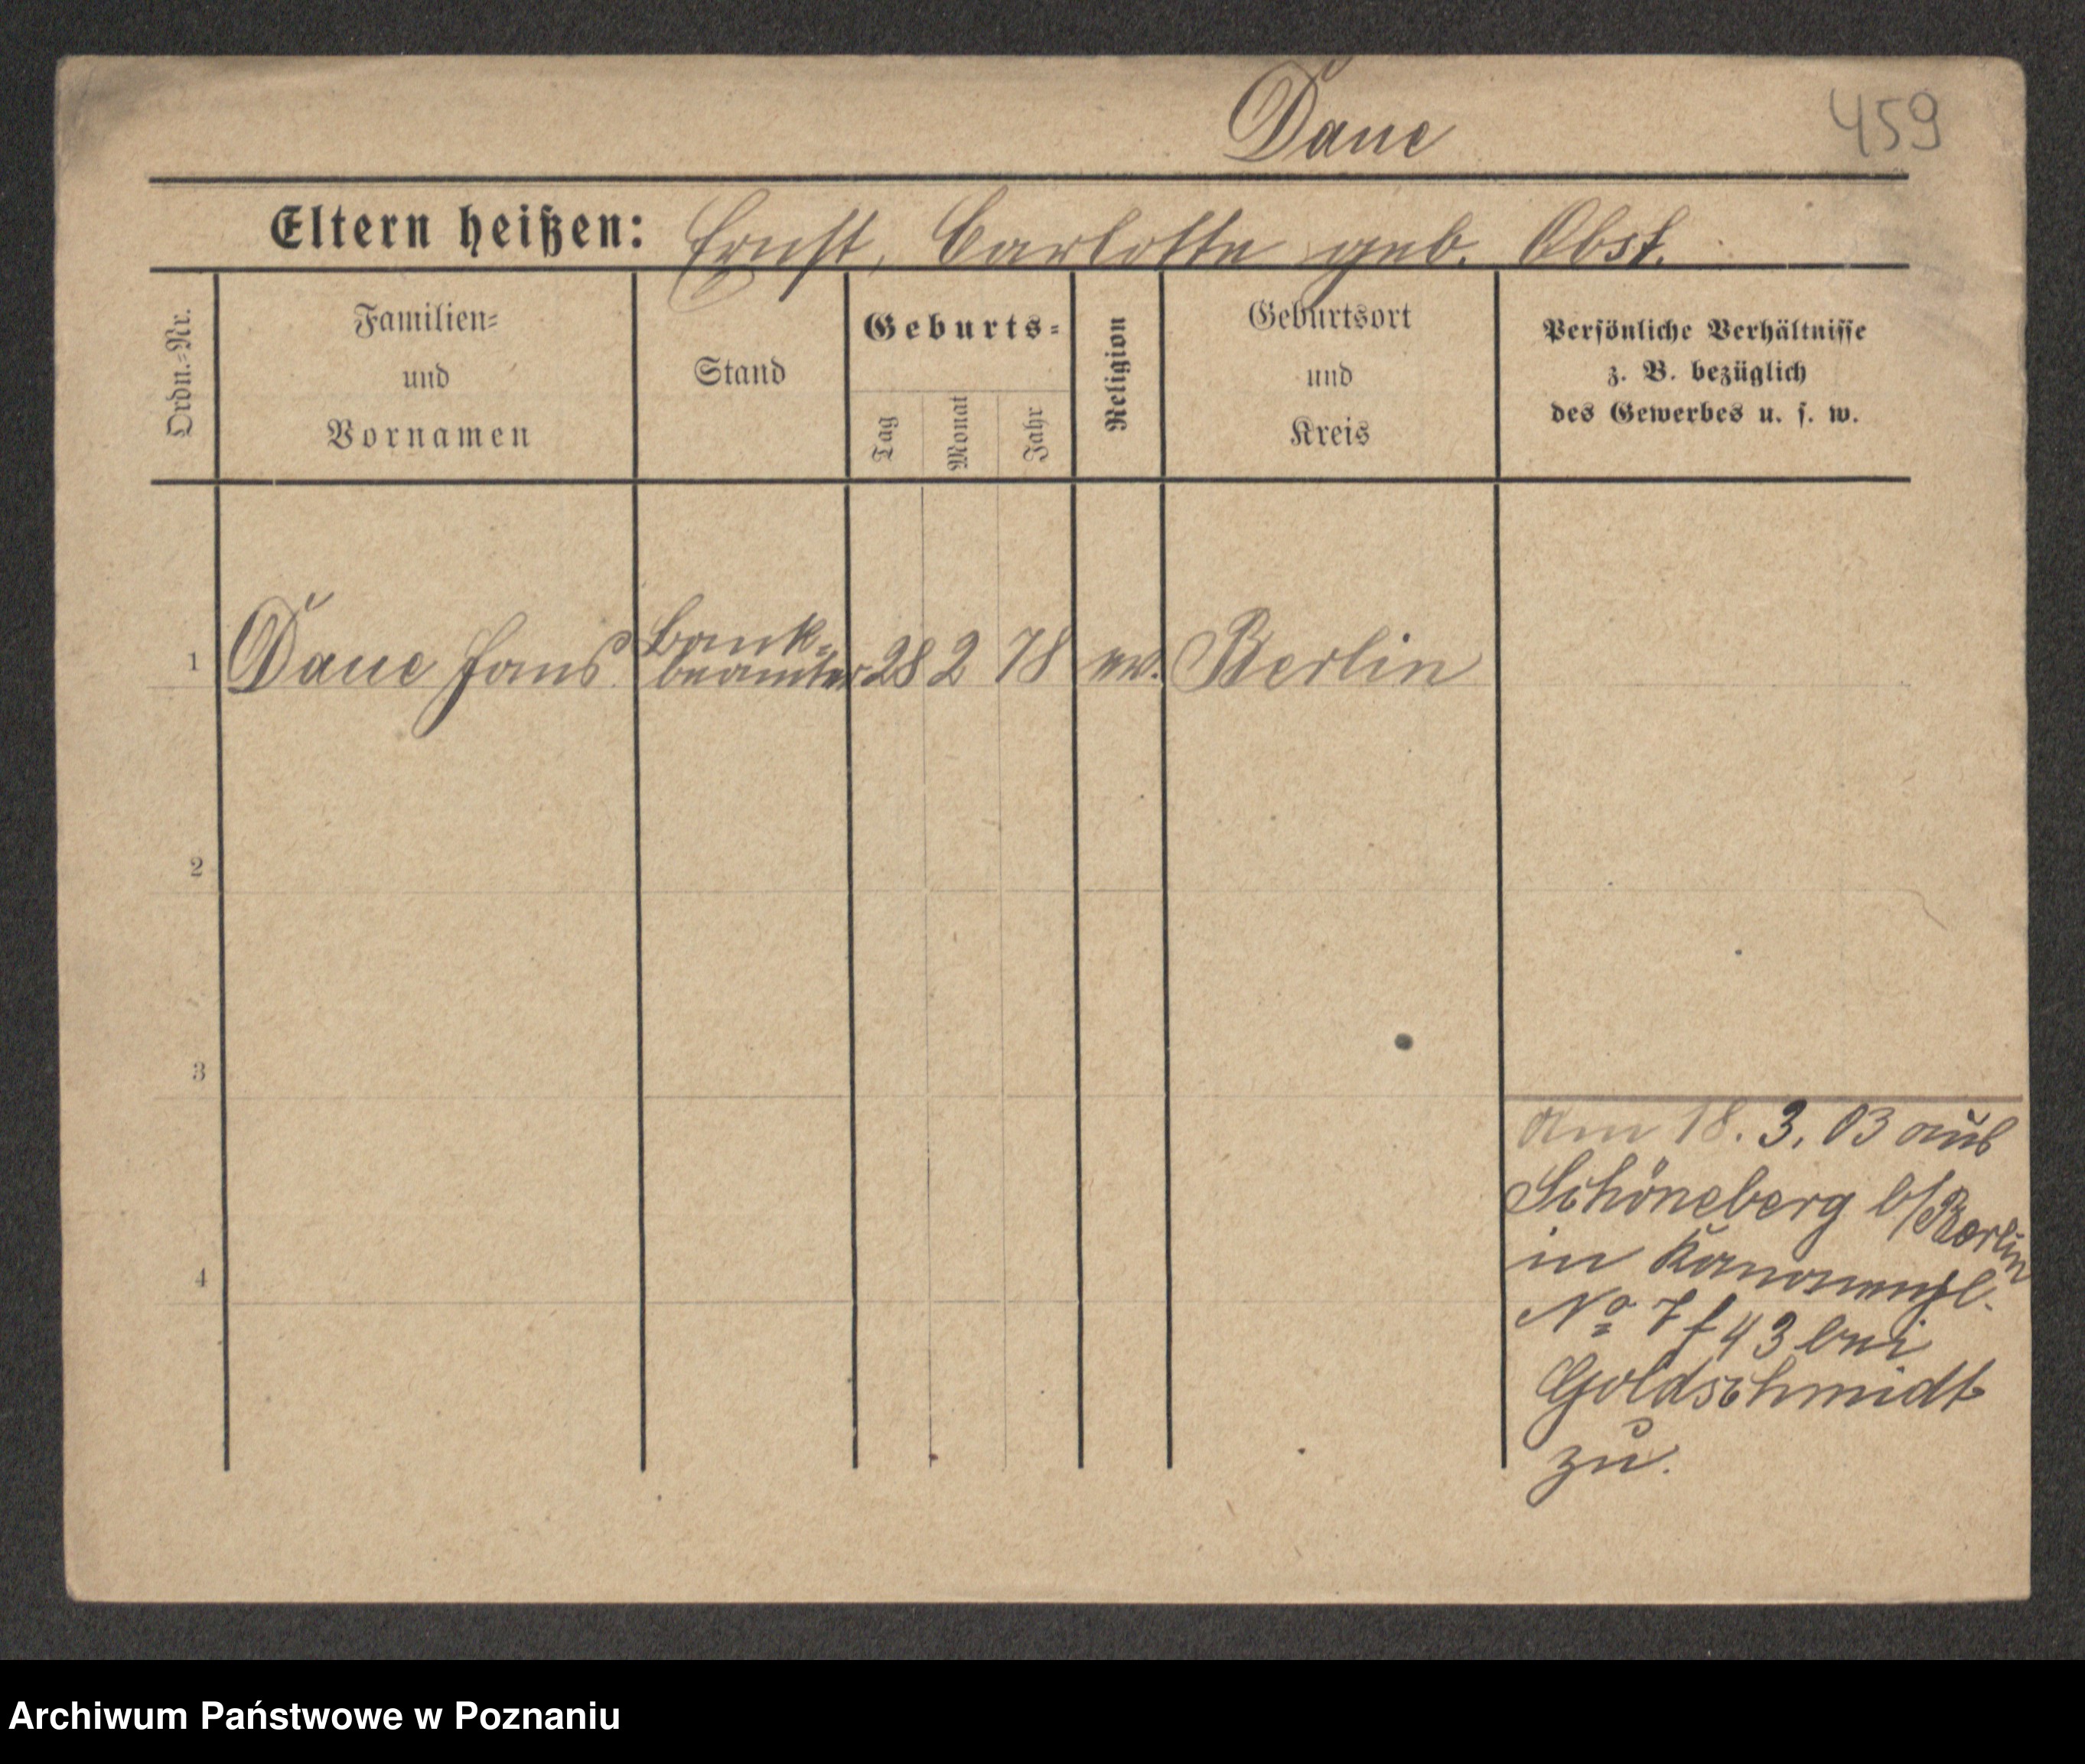 Daue
459
Eltern heißen: Ernst, Carlotte geb. Obst.
Ordn.=Nr.
Familien=
und
Vornamen
Stand
Geburts=
Tag
Monat
Jahr
Religion
Geburtsort
und
Kreis
Persönliche Verhältnisse
z. B. bezüglich
des Gewerbes u. s. w.
1 Daue Hans Bank=
beamter 28 2 78 ev. Berlin
2
3
4
am 18. 3. 03 aus
Schöneberg b/Berlin
in
No 7 f 43 bei
Goldschmidt
zu.
Archiwum Państwowe w Poznaniu